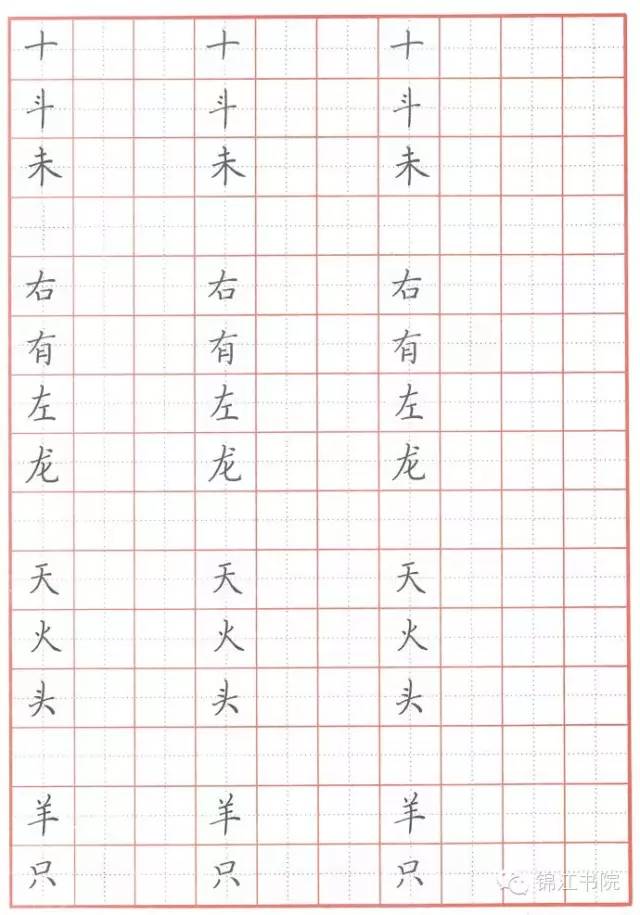 十 十 十
斗 斗 斗
未 未 未
右 右 右
有 有 有
左 左 左
龙 龙 龙
天 天 天
火 火 火
头 头 头
羊 羊 羊
只 只 只
锦江书院